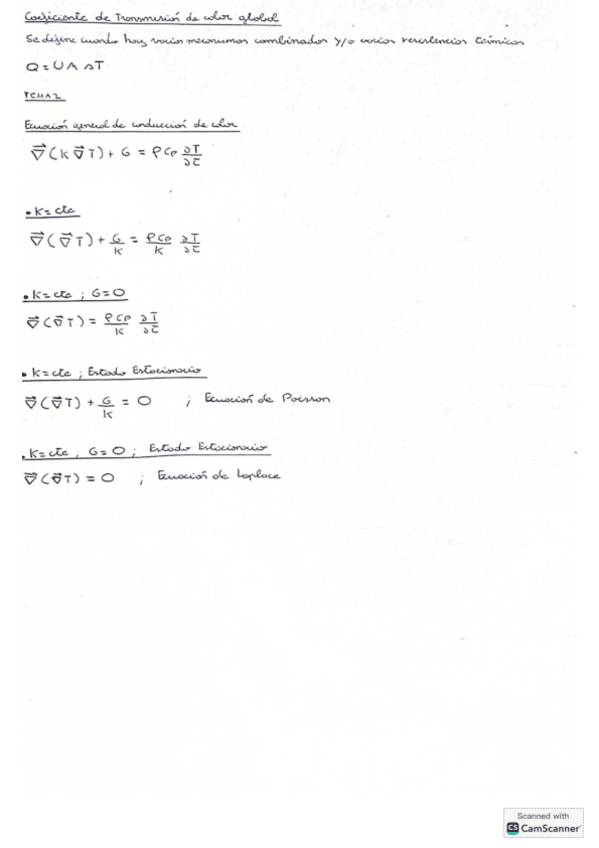 Coeficiente de Transmisión de calor global
Se define cuando hay varios mecanismos combinados y/o varias resistencias térmicas
Q = U A ΔT
TEMA 2
Ecuación general de conducción de calor
∇⃗(K ∇⃗T) + G = ρCp ∂T/∂τ
• K = cte
∇⃗(∇⃗T) + G/K = ρCp/K ∂T/∂τ
• K = cte ; G = 0
∇⃗(∇⃗T) = ρCp/K ∂T/∂τ
• K = cte ; Estado Estacionario
∇⃗(∇⃗T) + G/K = 0 ; Ecuación de Poisson
• K = cte ; G = 0 ; Estado Estacionario
∇⃗(∇⃗T) = 0 ; Ecuación de Laplace
Scanned with
CS CamScanner